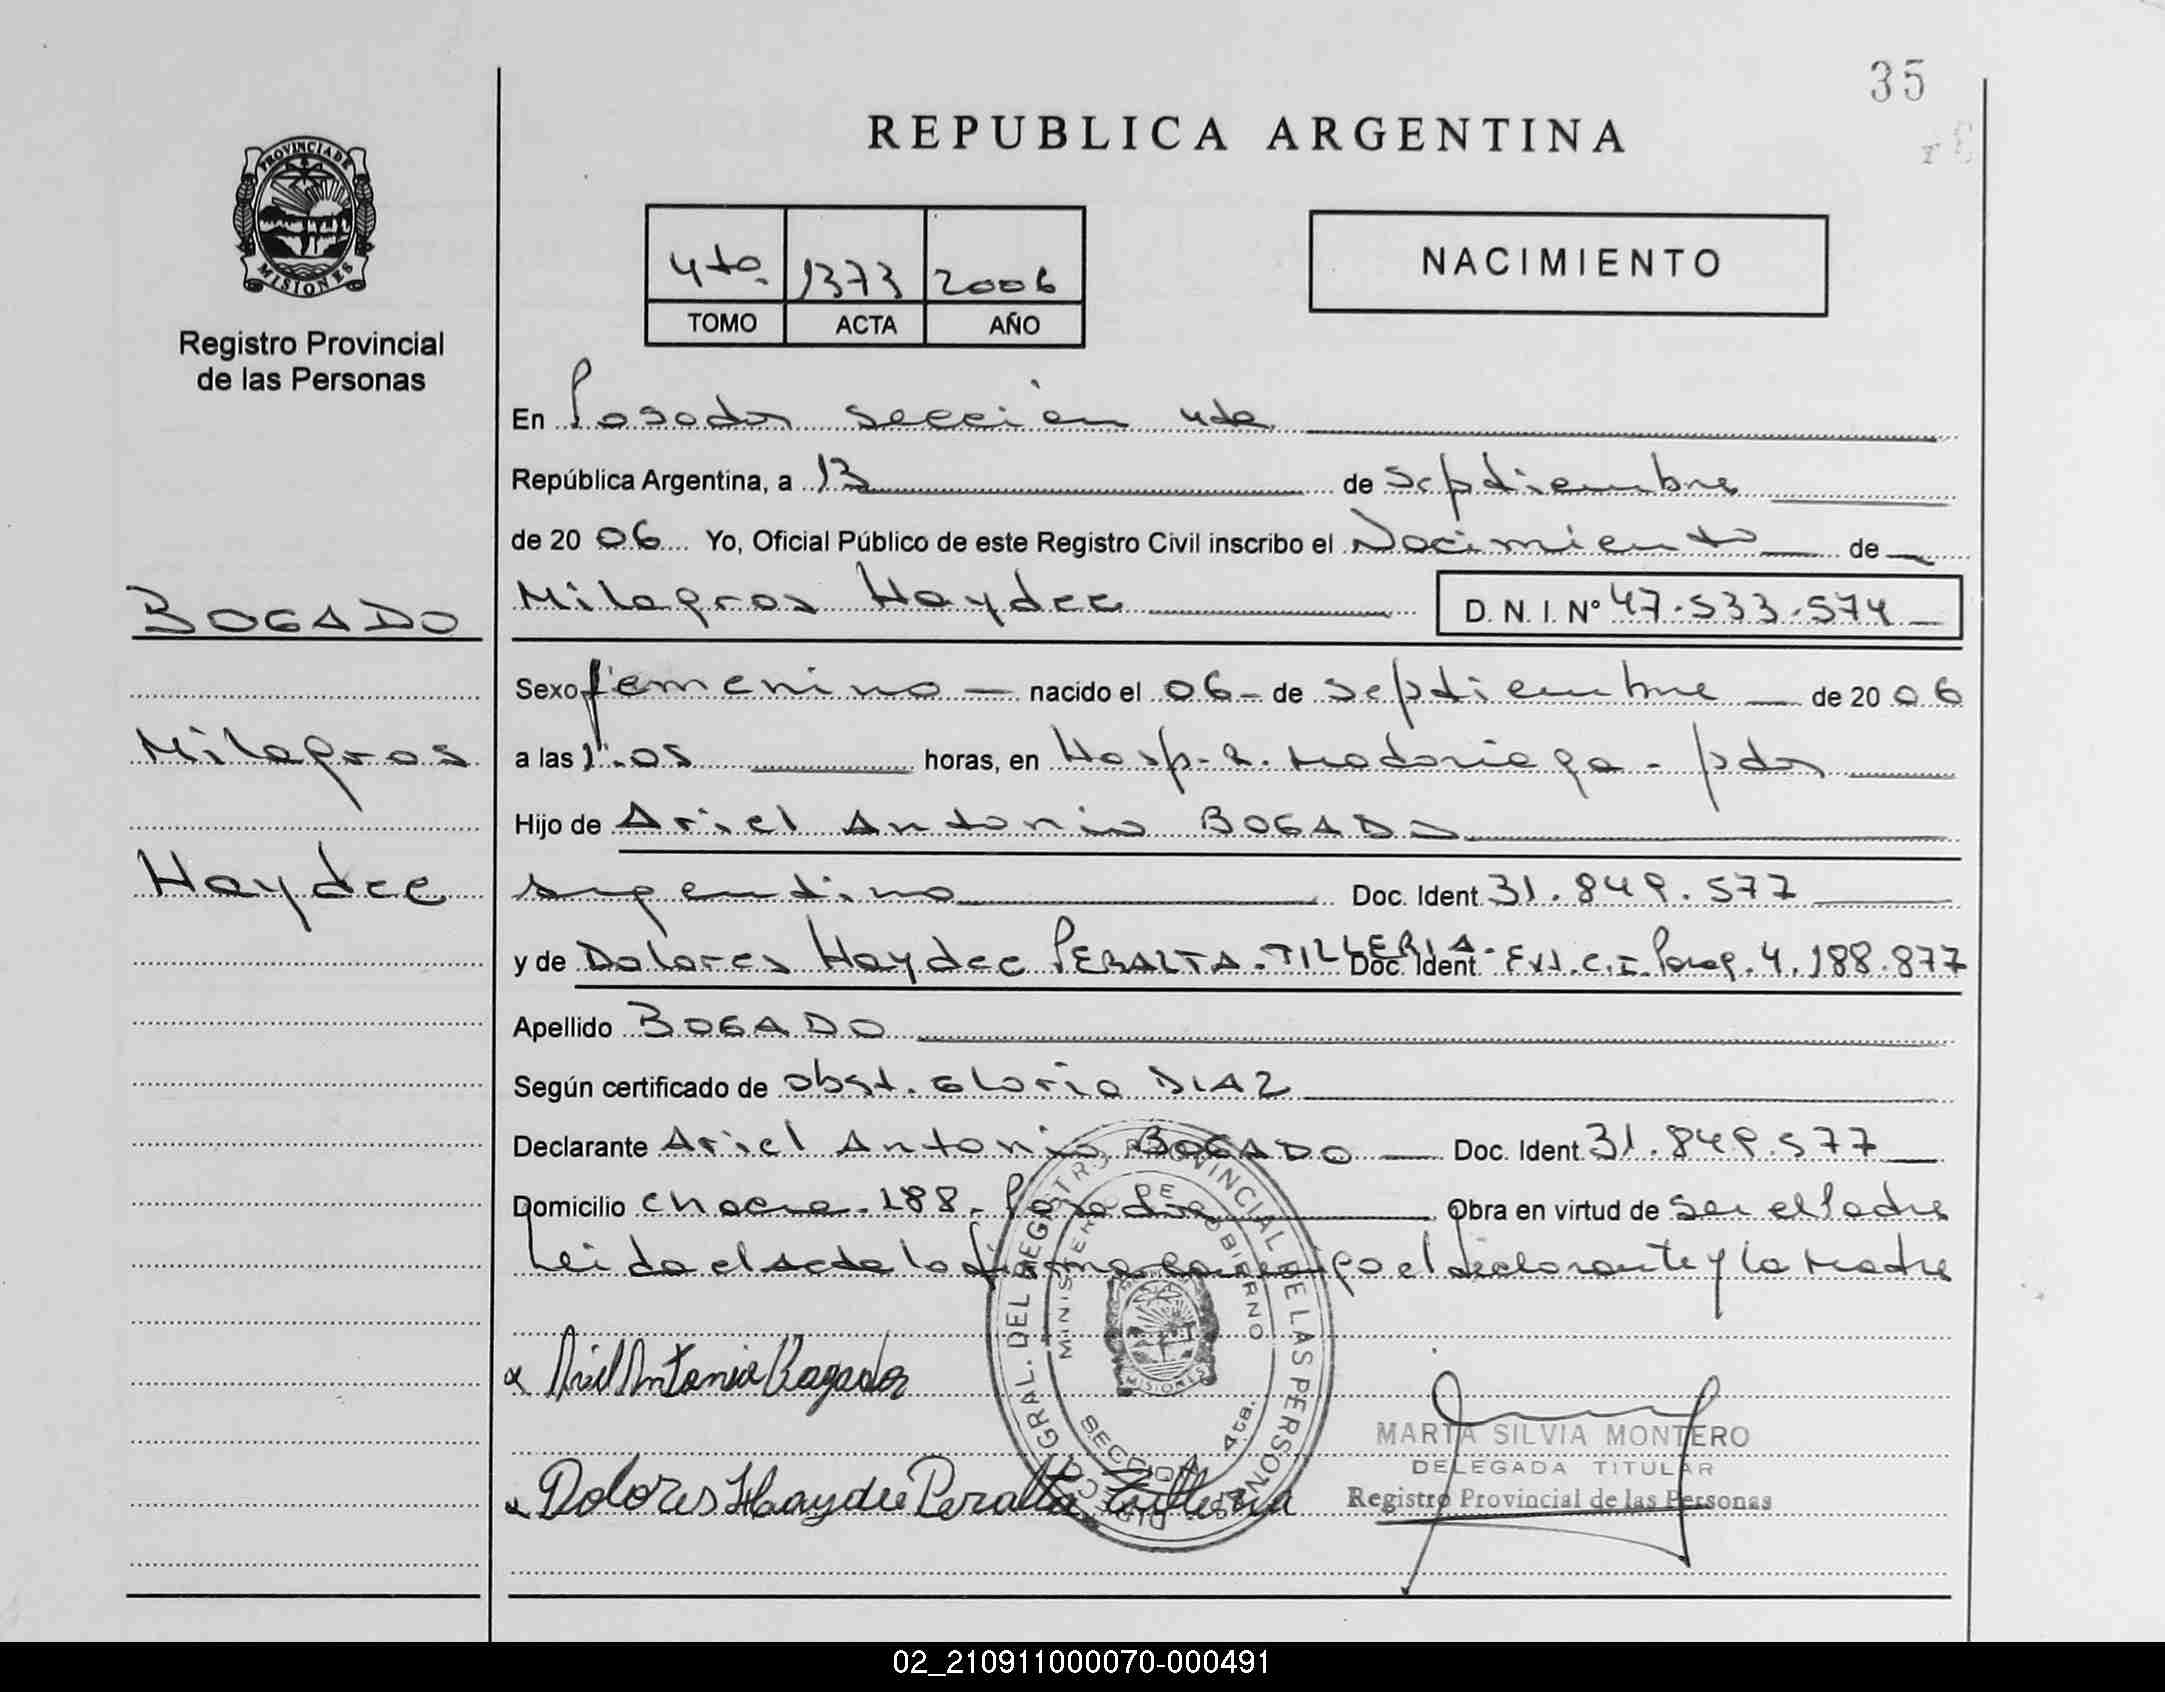 35
REPUBLICA ARGENTINA
PROVINCIA DE
MISIONES
Registro Provincial
de las Personas
4to. 1373 2006
TOMO ACTA AÑO
NACIMIENTO
En Posadas sección 4ta
República Argentina, a 13 de septiembre
de 2006 Yo, Oficial Público de este Registro Civil inscribo el Nacimiento de
BOGADO
Milagros Haydee D.N.I. Nº 47.533.574
Sexo femenino nacido el 06 de septiembre de 2006
Milagros
a las 1:05 horas, en Hosp. R. Madariaga - pdas
Hijo de Ariel Antonio BOGADO
Haydee
argentino Doc. Ident. 31.849.577
y de Dolores Haydee PERALTA TILLERIA Doc. Ident. C.I. Parag. 4.188.877
Apellido BOGADO
Según certificado de obst. Gloria DIAZ
Declarante Ariel Antonio BOGADO Doc. Ident. 31.849.577
Domicilio chacra 188 - Posadas Obra en virtud de ser el Padre
Leida el acta la firma conmigo el declarante y la Madre
DIREC. GRAL. DEL REGISTRO PROVINCIAL DE LAS PERSONAS
MINISTERIO DE GOBIERNO
MISIONES
SECCION 4ta.
Ariel Antonio Bogado
MARTA SILVIA MONTERO
DELEGADA TITULAR
Registro Provincial de las Personas
Dolores Haydee Peralta Tilleria
02_210911000070-000491